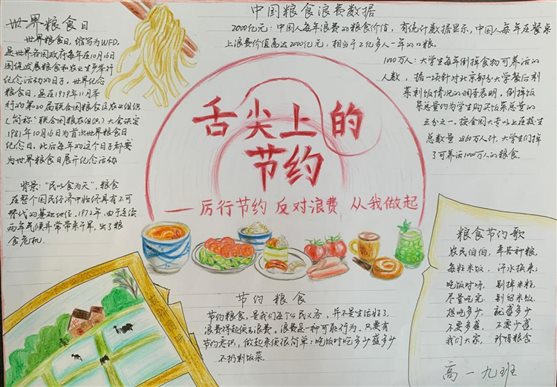 世界粮食日
世界粮食日,缩写为WFD,
是世界各国政府每年在10月16日
围绕发展粮食和农业生产举行
纪念活动的日子,世界纪念
粮食日,是在1979年11月举
行的第20届联合国粮食及农业组织
(简称"联合国粮农组织")大会决定
1981年10月16日为首次世界粮食日
纪念日,此后每年的这个日子都要为
为世界粮食日展开纪念活动
背景:"民以食为天",粮食
在整个国民经济中始终具有不可
替代的基础地位,1972年,由于连续
两年气候异常带来
粮食危机
中国粮食浪费数据
2000亿元:中国人每年浪费的粮食价值,有统计数据显示,中国人每年在餐桌
上浪费价值高达2000亿元,相当于2亿多人一年的口粮.
1000万人:大学生每年倒掉食物可养活的
人数,据一项针对北京部分大学餐后剩
菜剩饭情况的调查表明,倒掉饭
菜总量约为学生购买饭菜总量的
五分之一,按全国大专以上在校生
总数量
了可养活1000万人的粮食.
舌尖上的
节约
—厉行节约 反对浪费 从我做起
节约粮食
节约粮食,是我们每个公民义务,并不是生活好了,
浪费得起便可浪费,浪费是一种可耻行为,只要有
节约意识,做起来便很简单:吃饭时吃多少盛多少
不扔剩饭菜.
粮食节约歌
农民伯伯, 辛苦种粮,
每粒米饭, 汗水换来,
吃饭时, 别掉米粒,
尽量吃完, 别留米饭,
想吃多少, 就盛多少
不要多盛, 不要少盛,
我们大家, 珍惜粮食
高一九班